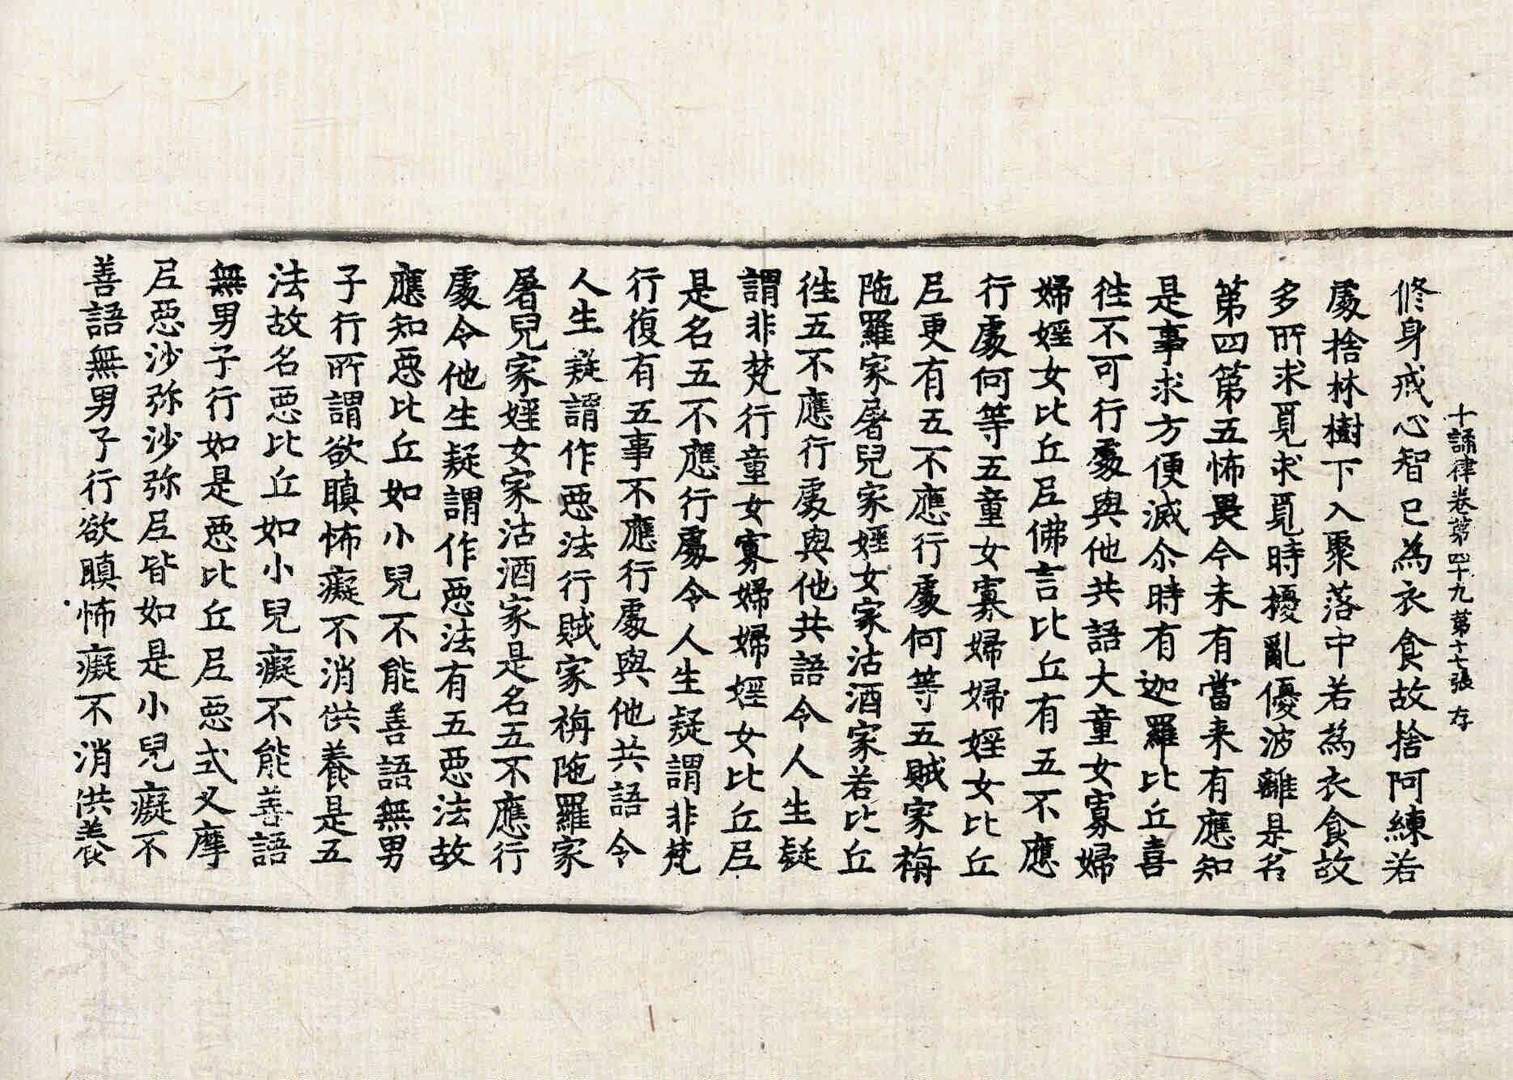 十誦律卷第四十九 第十七張 存
脩身戒心智已為衣食故捨阿練若
處捨林樹下入聚落中若為衣食故
多所求覓求覓時擾亂優波離是名
第四第五怖畏今未有當来有應知
是事求方便滅尒時有迦羅比丘喜
徃不可行處與他共語大童女寡婦
婦婬女比丘尼佛言比丘有五不應
行處何等五童女寡婦婦婬女比丘
尼更有五不應行處何等五賊家栴
陁羅家屠兒家婬女家沽酒家若比丘
徃五不應行處與他共語令人生疑
謂非梵行童女寡婦婦婬女比丘尼
是名五不應行處令人生疑謂非梵
行復有五事不應行處與他共語令
人生疑謂作惡法行賊家栴陁羅家
屠兒家婬女家沽酒家是名五不應行
處令他生疑謂作惡法有五惡法故
應知惡比丘如小兒不能善語無男
子行所謂欲瞋怖癡不消供養是五
法故名惡比丘如小兒癡不能善語
無男子行如是惡比丘尼惡式叉摩
尼惡沙弥沙弥尼皆如是小兒癡不
善語無男子行欲瞋怖癡不消供養